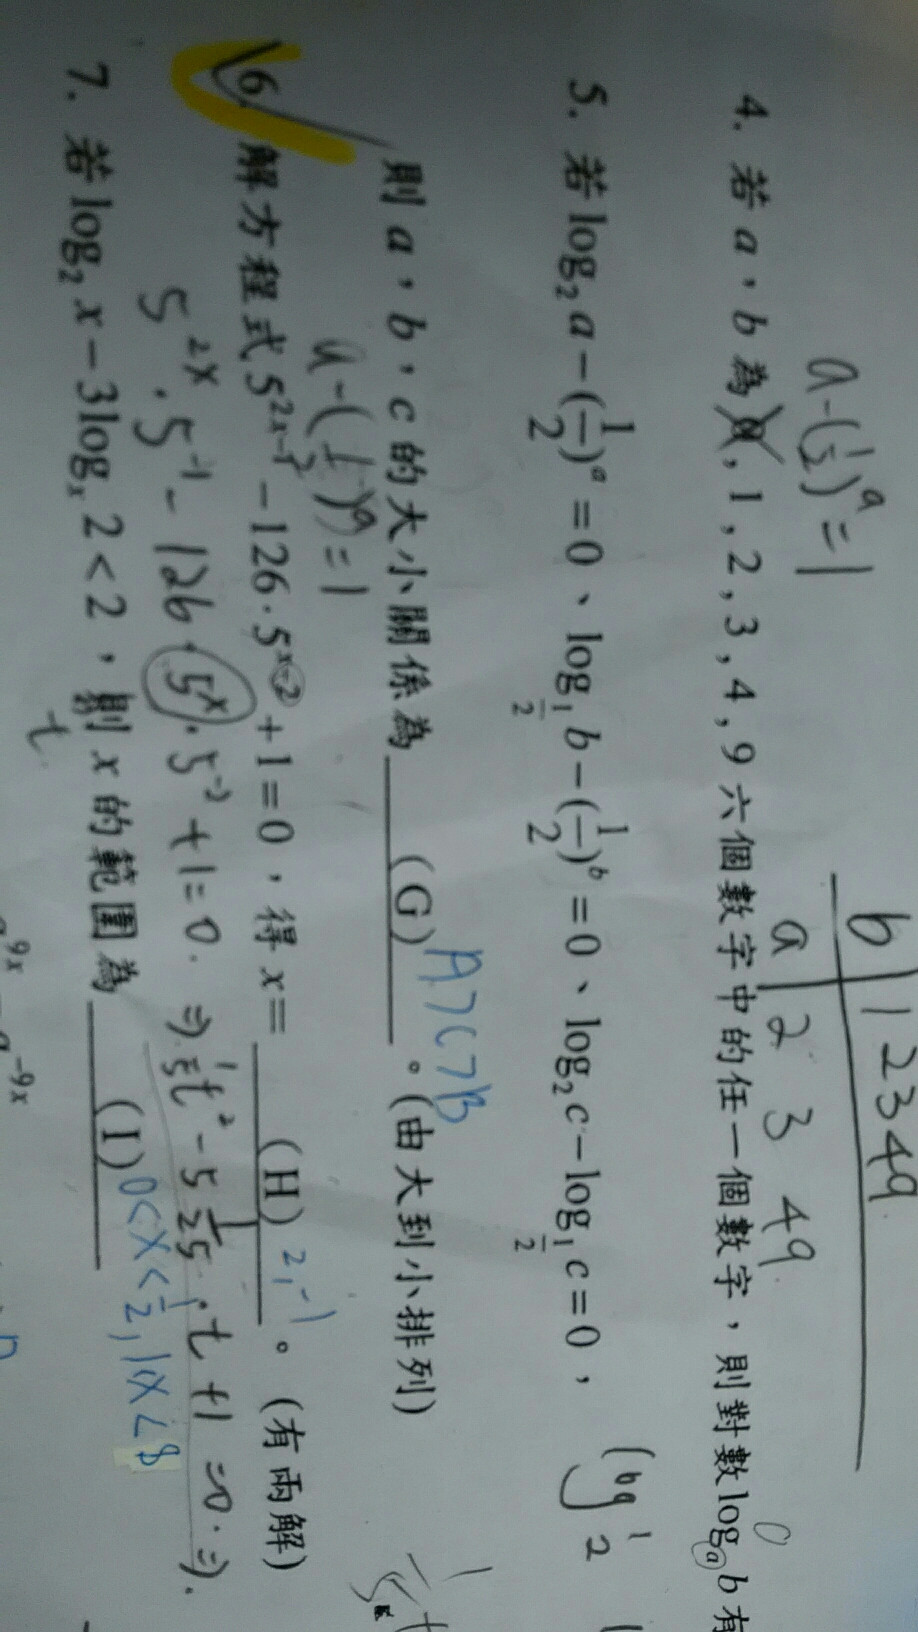 b | 1 2 3 4 9
a | 2 3 4 9
a-(1/2)^a=1
4. 若 a，b 為 0, 1, 2, 3, 4, 9 六個數字中的任一個數字，則對數 log_a b 有
5. 若 log₂ a－(1/2)^a＝0、log_{1/2} b－(1/2)^b＝0、log₂ c－log_{1/2} c＝0，
log 1 2
則 a，b，c 的大小關係為 (G) 。(由大到小排列)
A>C>B
a-(1/2)^a=1
6. 解方程式 5^{2x-1}－126·5^{x-2}＋1＝0，得 x＝ (H) 。(有兩解)
2, -1
5^{2x}·5^{-1}-126·5^x·5^{-2}+1=0. ⇒ 1/5 t²-5 1/25·t+1=0.⇒.
t
7. 若 log₂ x－3log_x 2＜2，則 x 的範圍為 (I)
0<x<1/2, 1<x<8
a^{9x} - a^{-9x}